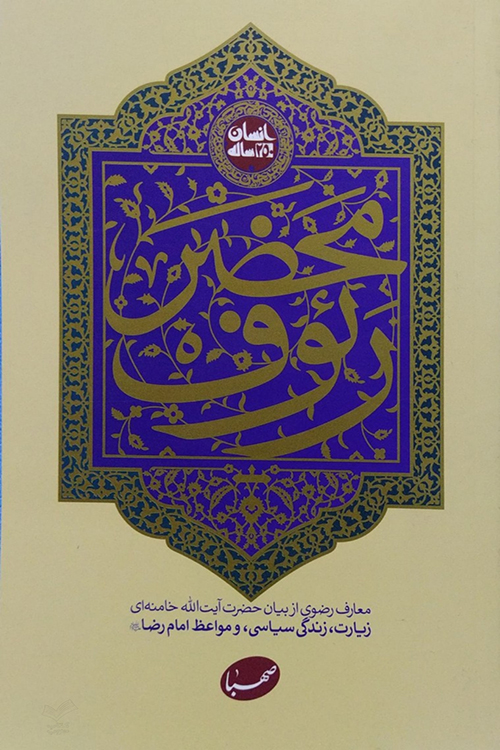 انسان
۲۵۰ساله
محضر
رئوف
معارف رضوی از بیان حضرت آیت‌الله خامنه‌ای
زیارت، زندگی سیاسی، و مواعظ امام رضا
صهبا